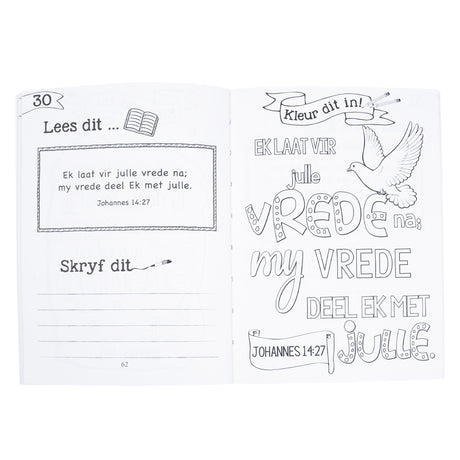 30
Lees dit ...
Ek laat vir julle vrede na;
my vrede deel Ek met julle.
Johannes 14:27
Skryf dit
62
Kleur dit in!
EK LAAT VIR
julle
VREDE na;
my VREDE
DEEL EK MET
JOHANNES 14:27 JULLE.